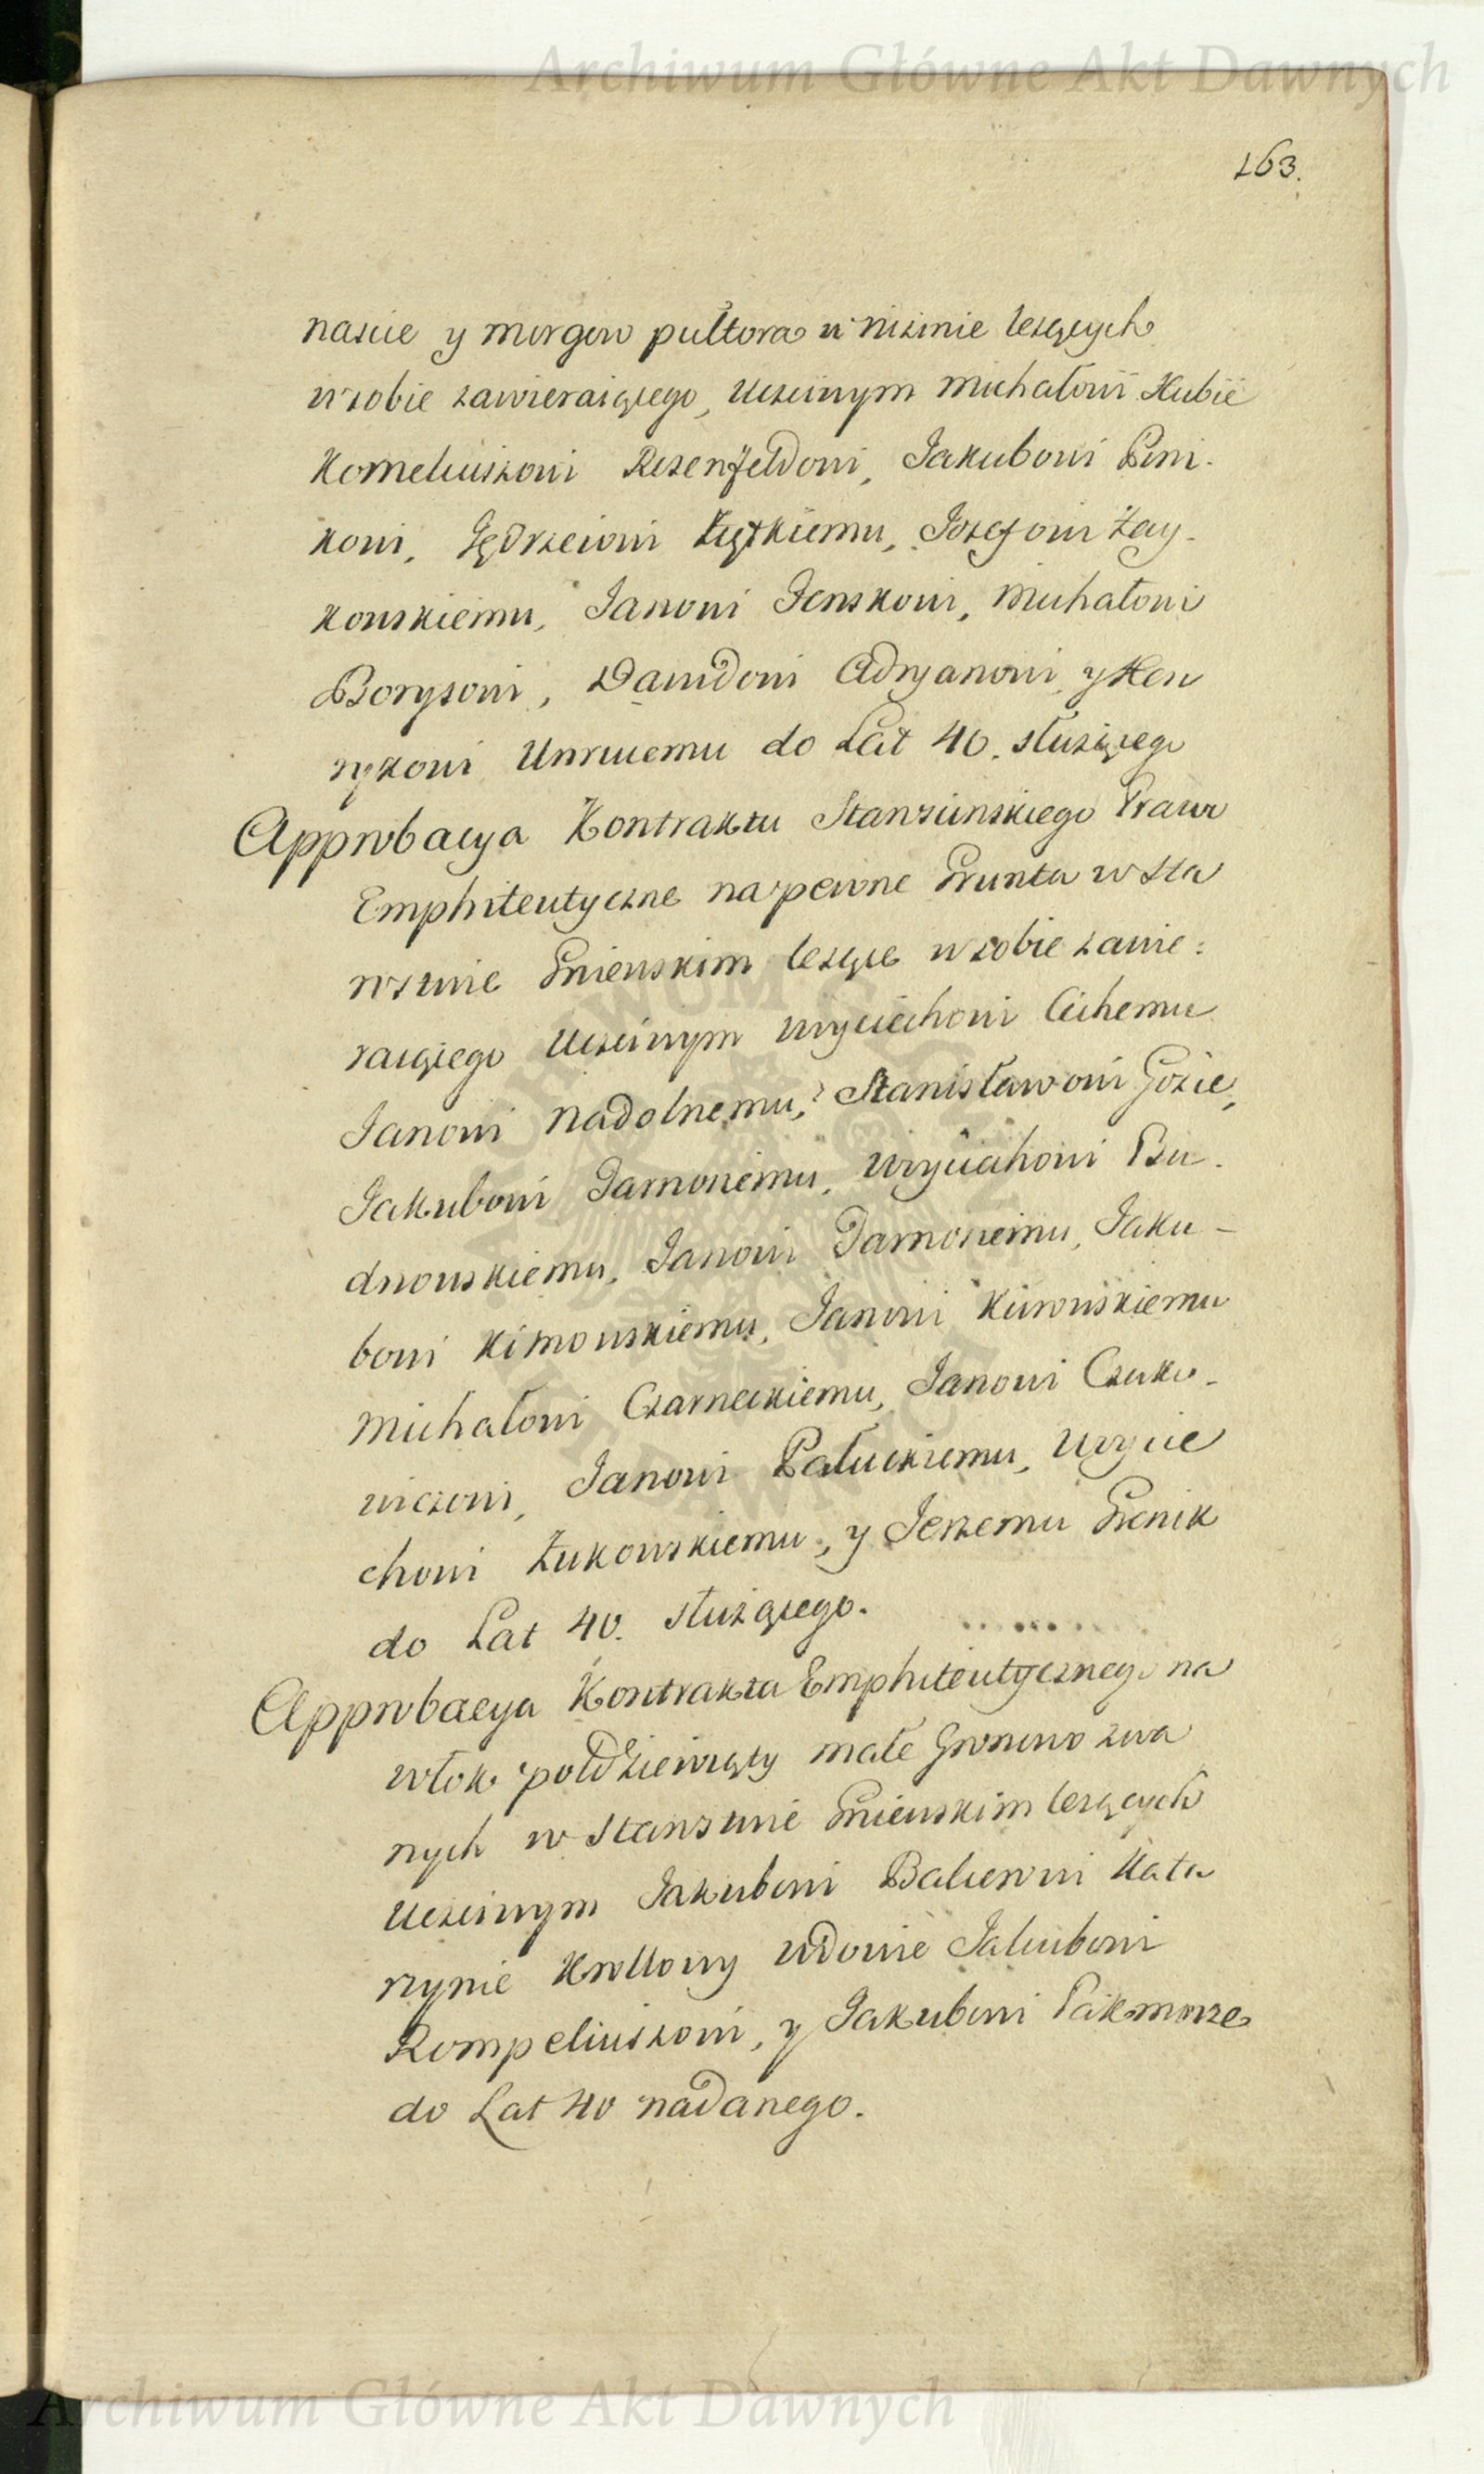 Archiwum Główne Akt Dawnych
163.
nascie y morgow pułtora w nizinie lezących
w sobie zawieraiącego, Uczciwym Michałowi Kubie
Korneliuszowi Rezenfeldowi, Jakubowi Pini-
kowi, Jędrzeiowi Ziętkiemu, Jozefowi Zay-
kowskiemu, Janowi Jenskowi, Michałowi
Borysowi, Dawidowi Adryanowi, y Hen
rykowi Unruemu do Lat 40. służącego
Approbacya Kontraktu Starościnskiego Prawo
Emphiteutyczne na pewne Grunta w Sta
rostwie Gniewskim lezące w sobie zawie:
raiącego Uczciwym Woyciechowi Cichemu
Janowi Nadolnemu, Stanisławowi Gozie,
Jakubowi Damonemu, Woyciechowi Bu-
dnowskiemu, Janowi Damonemu, Jaku-
bowi Kimowskiemu, Janowi Kurowskiemu
Michałowi Czarneckiemu, Janowi Czako-
wiczowi, Janowi Pałuckiemu, Woycie
chowi Zukowskiemu, y Jerzemu Grenik
do Lat 40. służącego.
Approbacya Kontraktu Emphiteutycznego na
włok połdziewięty małe Gronowo zwa
nych w Starostwie Gniewskim lezących
Uczciwym Jakubowi Balcerowi Kata
rzynie Krollowy Wdowie Jakubowi
Rompeliuszowi, y Jakubowi Pakmorze
do Lat 40 nadanego.
Archiwum Główne Akt Dawnych